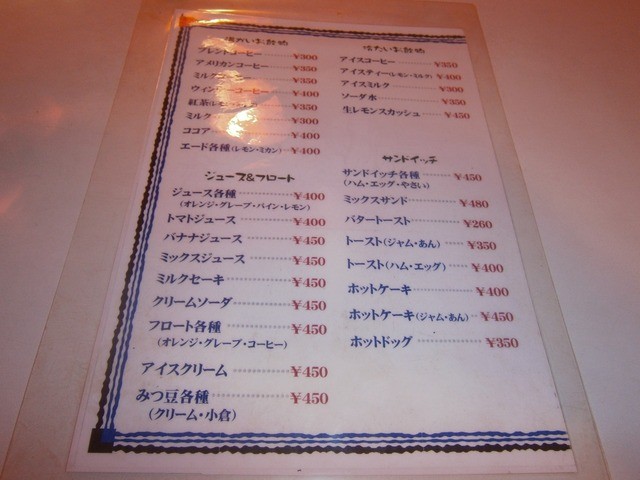 温かいお飲物
ブレンドコーヒー ¥300
アメリカンコーヒー ¥350
ミルクコーヒー ¥350
ウィンナーコーヒー ¥400
紅茶(レモン・ミルク) ¥350
ミルク ¥300
ココア ¥400
エード各種(レモン・ミカン) ¥400
ジュース&フロート
ジュース各種 ¥400
(オレンジ・グレープ・パイン・レモン)
トマトジュース ¥400
バナナジュース ¥450
ミックスジュース ¥450
ミルクセーキ ¥450
クリームソーダ ¥450
フロート各種 ¥450
(オレンジ・グレープ・コーヒー)
アイスクリーム ¥450
みつ豆各種 ¥450
(クリーム・小倉)
冷たいお飲物
アイスコーヒー ¥350
アイスティー(レモン・ミルク) ¥400
アイスミルク ¥300
ソーダ水 ¥350
生レモンスカッシュ ¥450
サンドイッチ
サンドイッチ各種 ¥450
(ハム・エッグ・やさい)
ミックスサンド ¥480
バタートースト ¥260
トースト(ジャム・あん) ¥350
トースト(ハム・エッグ) ¥400
ホットケーキ ¥400
ホットケーキ(ジャム・あん) ¥450
ホットドッグ ¥350